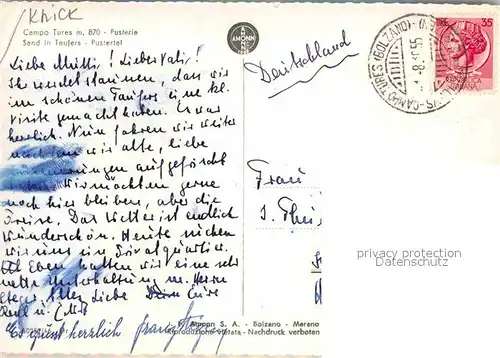 Knick
Campo Tures m. 870 - Pusteria
Sand in Taufers - Pustertal
AMONN
Deutschland
CAMPO TURES (BOLZANO)
-8.55
35
Liebe Mutti! Lieber Vati!
Ihr werdet staunen, dass wir
im schönen Taufers eine kl.
Visite gemacht haben. Es war
herrlich. Nun fahren wir weiter
nachdem wir alte, liebe
Erinnerungen aufgefrischt
Wir möchten gerne
noch hier bleiben, aber die
Preise. Das Wetter ist endlich
Wunderschön. Heute suchen
wir uns ein Privatquartier.
Eben hatten wir eine sehr
nette Unterhaltung m. Herrn
Alles Liebe Eure
Es grüsst herzlich
Frau
privacy protection
Datenschutz
F. Amonn S. A. - Bolzano - Merano
Riproduzione vietata - Nachdruck verboten